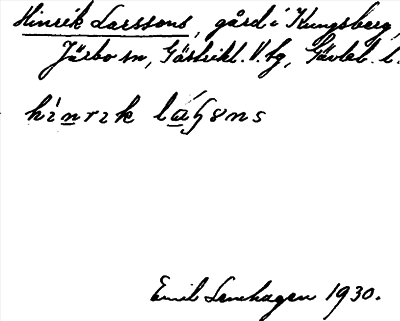 Hinrik Larssons, gård i Kungsberg,
Järbo sn, Gästrikl. V. tg, Gävleb. l.
hìnrɪk láꞩsns
Emil Lenhagen 1930.